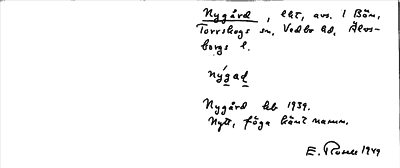 Nygård, lht, avs. i Bön,
Torrskogs sn, Vedbo hd, Älvs-
borgs l.
nýgad
Nygård hb 1939.
Nytt, föga känt namn.
E. Rosell 1949